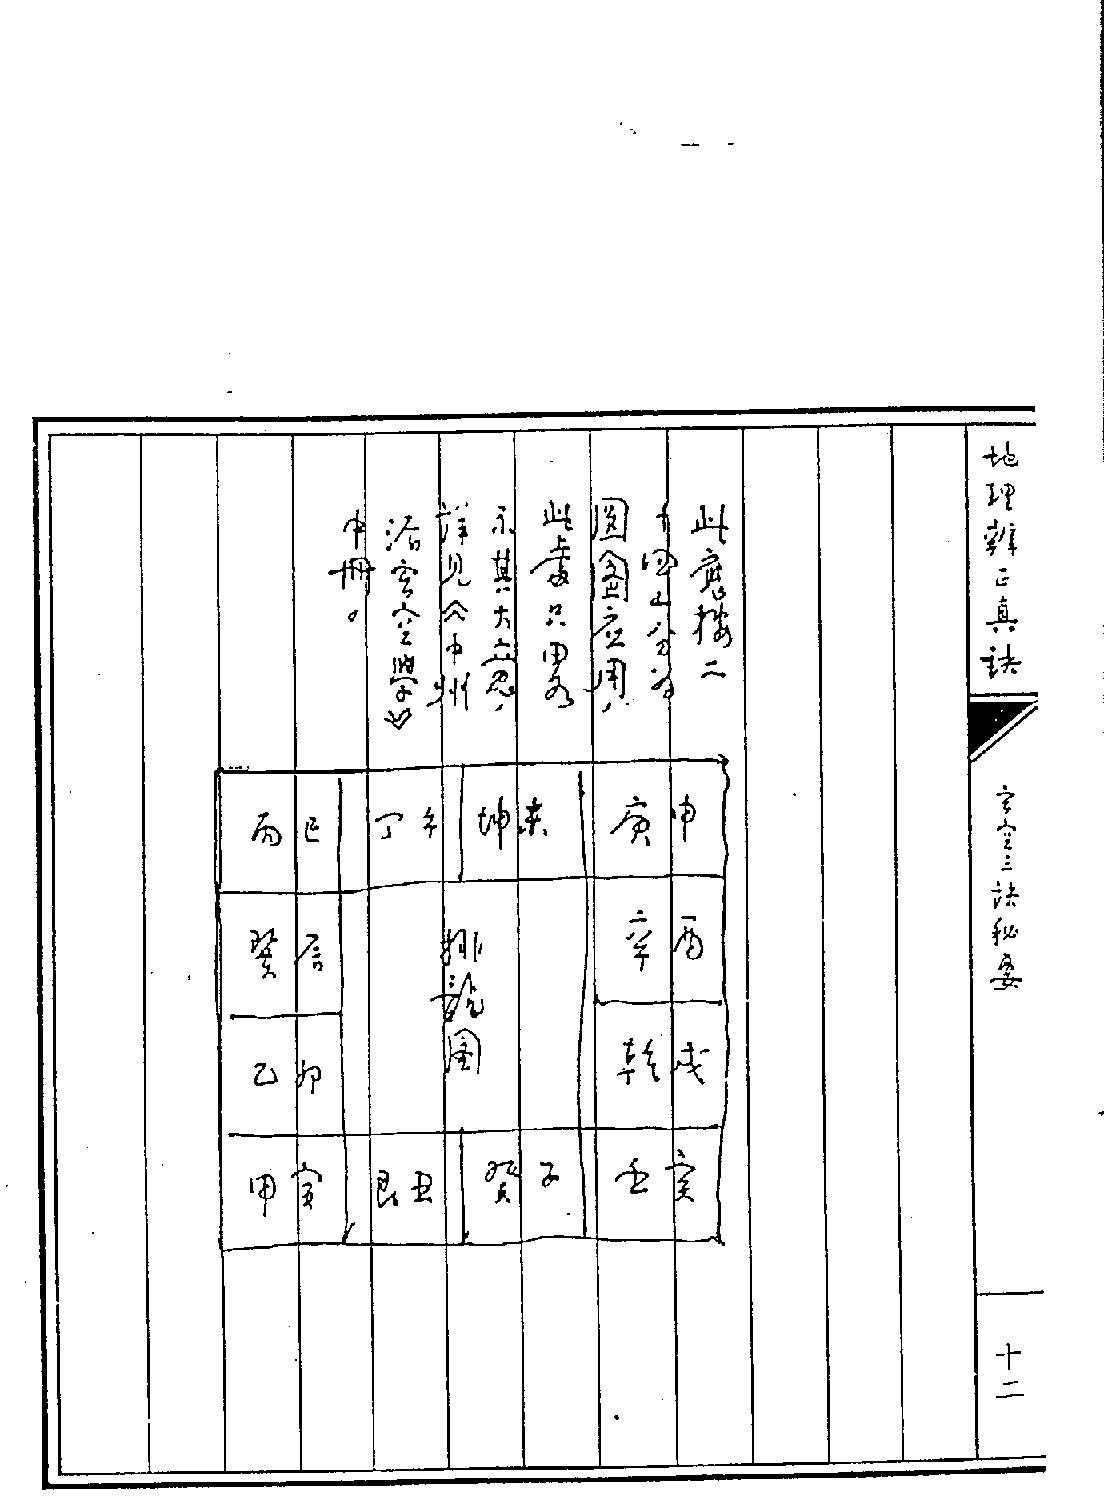 地理辨正真訣
玄空三訣秘要
十二
此應按二
十四山分為
圓圖应用，
此處只畧
示其大意，
詳見《中州
派玄空學》
中冊。
丙巳
丁午
坤未
庚申
巽辰
辛酉
乙卯
乾戌
甲寅
艮丑
癸子
壬亥
排龍图